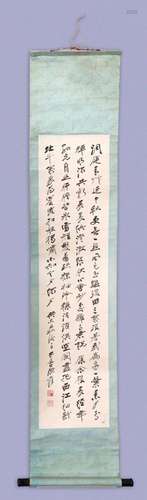 洞庭青草近中秋更無一點風色玉界瓊田三萬頃著我扁舟一葉素月分
輝明河共影表裏俱澄澈悠然心會妙處難與君說應念嶺表經年
孤光自照肝膽皆冰雪短髮蕭疏襟袖冷穩泛滄溟空闊盡挹西江細斟
北斗萬象為賓客扣舷獨嘯不知今夕何夕